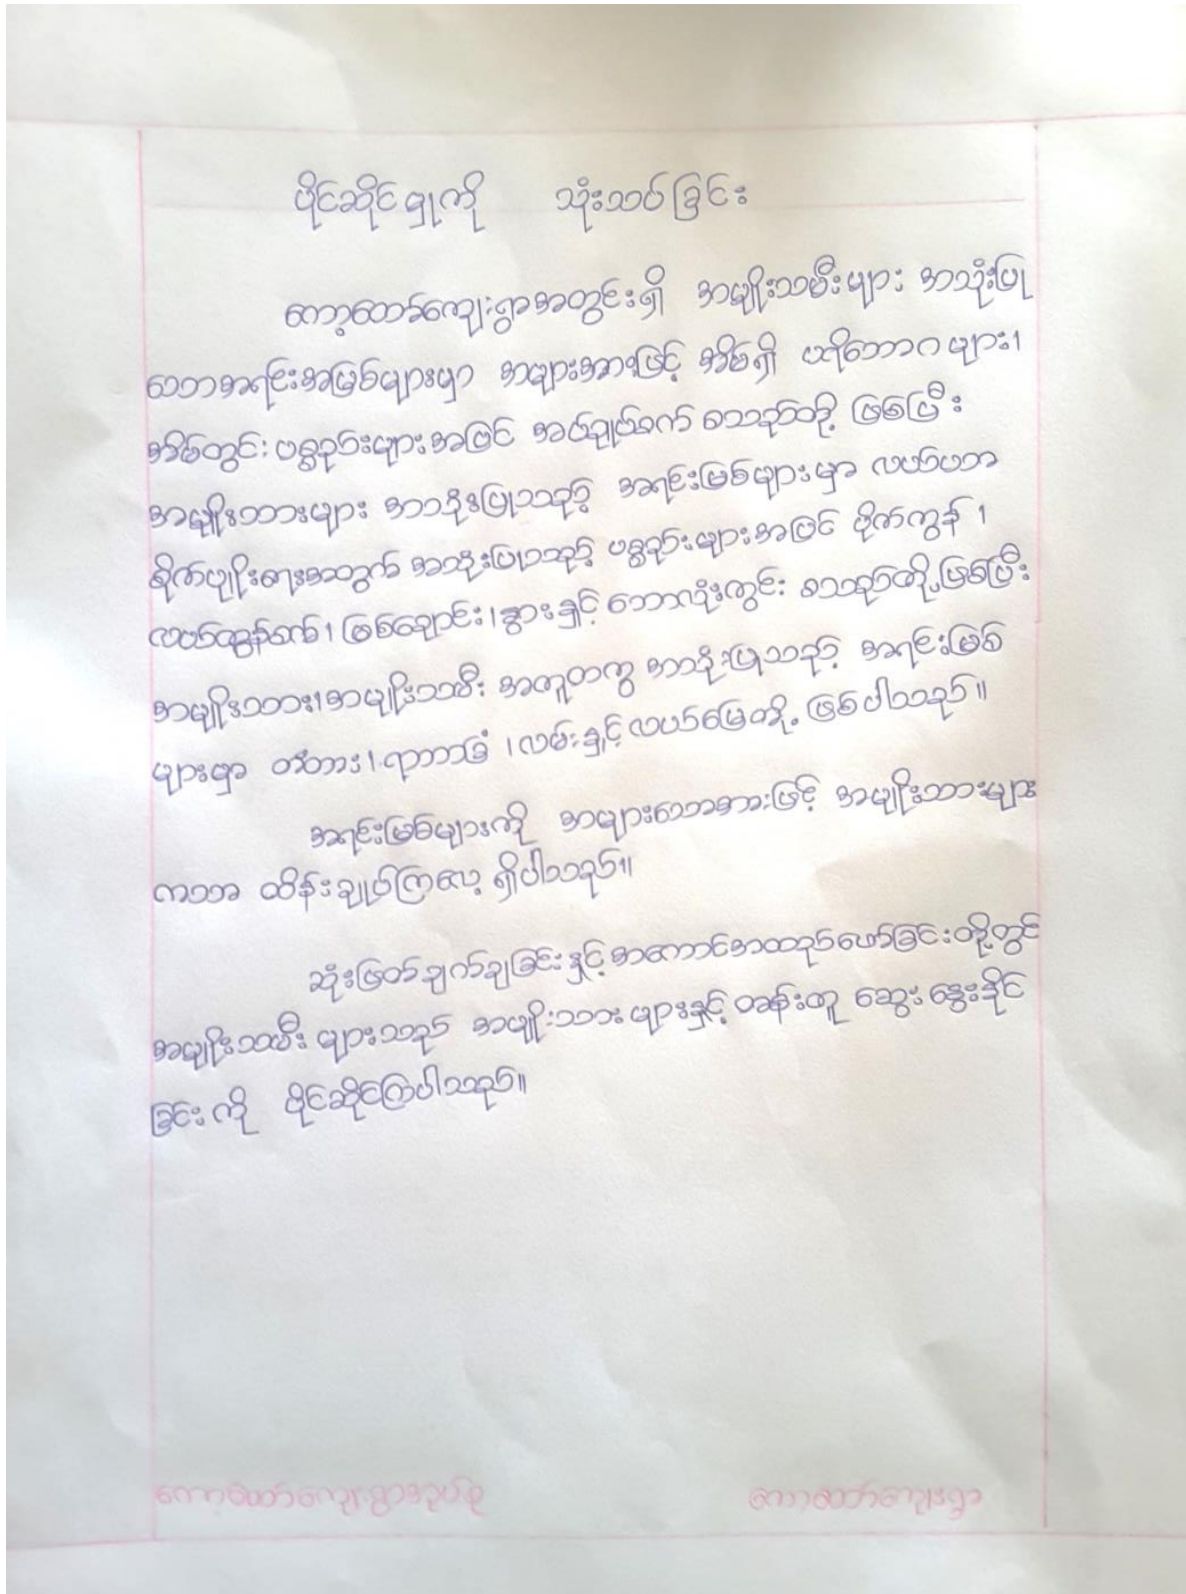 ပိုင်ဆိုင်မှုကို သုံးသပ်ခြင်း
ကော့ထော်ကျေးရွာအတွင်းရှိ အမျိုးသမီးများ အသုံးပြု
သောအရင်းအမြစ်များမှာ အများအားဖြင့် အိမ်ရှိ ပရိဘောဂများ၊
အိမ်တွင်းပစ္စည်းများအပြင် အပ်ချုပ်စက် စသည်တို့ ဖြစ်ပြီး
အမျိုးသားများ အသုံးပြုသည့် အရင်းမြစ်များမှာ လယ်ယာ
စိုက်ပျိုးရေးအတွက် အသုံးပြုသည့် ပစ္စည်းများအပြင် ပိုက်ကွန်၊
လယ်ထွန်စက်၊ မြစ်ချောင်း၊ နွားနှင့် ဘောလုံးကွင်း စသည်တို့ဖြစ်ပြီး
အမျိုးသား၊ အမျိုးသမီး အတူတကွ အသုံးပြုသည့် အရင်းမြစ်
များမှာ တံတား၊ ရာဘာခြံ၊ လမ်းနှင့် လယ်မြေတို့ ဖြစ်ပါသည်။
အရင်းမြစ်များကို အများသောအားဖြင့် အမျိုးသားများ
ကသာ ထိန်းချုပ်ကြလေ့ ရှိပါသည်။
ဆုံးဖြတ်ချက်ချခြင်းနှင့် အကောင်အထည်ဖော်ခြင်းတို့တွင်
အမျိုးသမီးများသည် အမျိုးသားများနှင့် တန်းတူ ဆွေးနွေးနိုင်
ခြင်းကို ပိုင်ဆိုင်ကြပါသည်။
ကော့ထော်ကျေးရွာအုပ်စု ကော့ထော်ကျေးရွာ